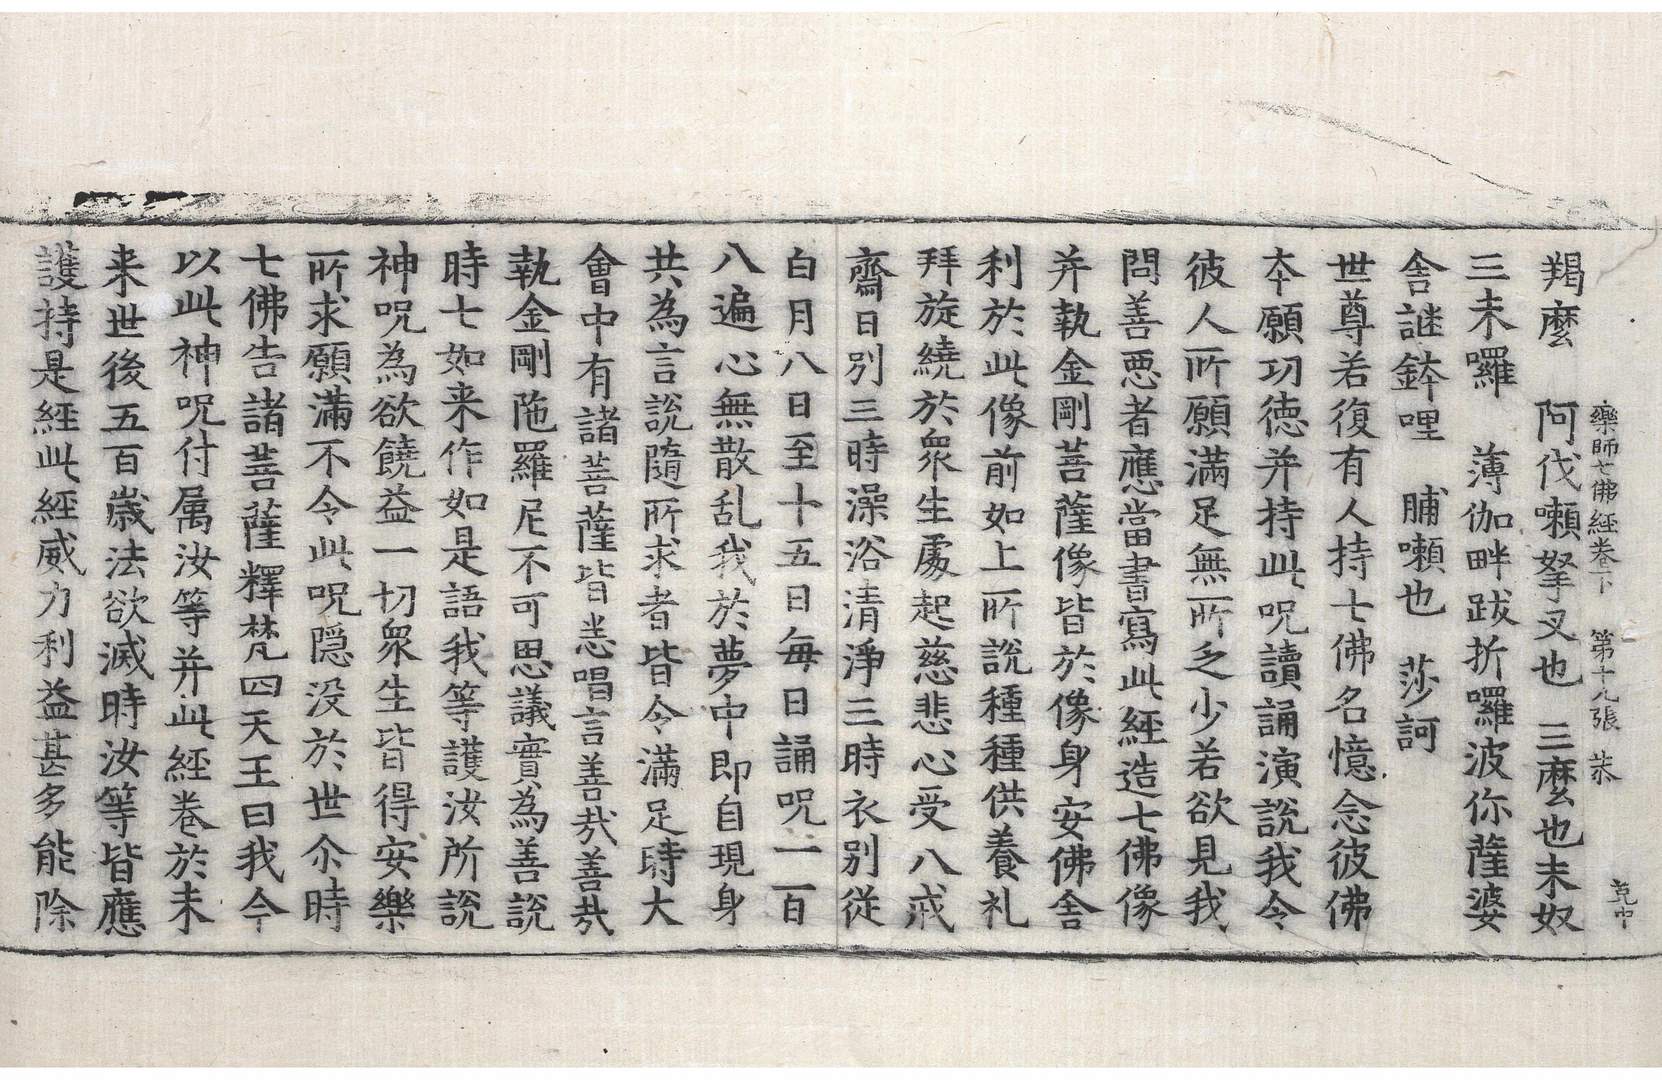 藥師七佛經卷下 第十九張 恭
克中
羯麼 阿伐嚩拏叉也 三麼也末奴
三末囉 薄伽畔跋折囉波你薩婆
舍謎鉢哩 脯嚩也 莎訶
世尊若復有人持七佛名憶念彼佛
本願功德并持此呪讀誦演說我令
彼人所願滿足無所乏少若欲見我
問善惡者應當書寫此經造七佛像
并執金剛菩薩像皆於像身安佛舍
利於此像前如上所說種種供養礼
拜旋繞於衆生處起慈悲心受八戒
齋日別三時澡浴清淨三時衣別從
白月八日至十五日每日誦呪一百
八遍心無散乱我於夢中即自現身
共為言說隨所求者皆令滿足時大
會中有諸菩薩皆悉唱言善哉善哉
執金剛陁羅尼不可思議實為善說
時七如来作如是語我等護汝所說
神呪為欲饒益一切衆生皆得安樂
所求願滿不令此呪隱没於世尒時
七佛告諸菩薩釋梵四天王曰我今
以此神呪付属汝等并此經卷於未
来世後五百歲法欲滅時汝等皆應
護持是經此經威力利益甚多能除